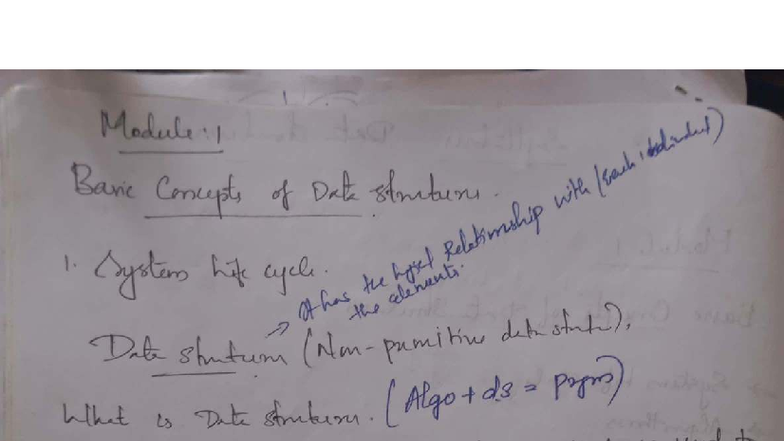 Module: 1
Basic Concepts of Data structures.
1. System life cycle.
It has the logical Relationship with (each individual)
the elements.
Data structures (Non-primitive data structure),
What is Data structures. (Algo + d.s = Pgms)